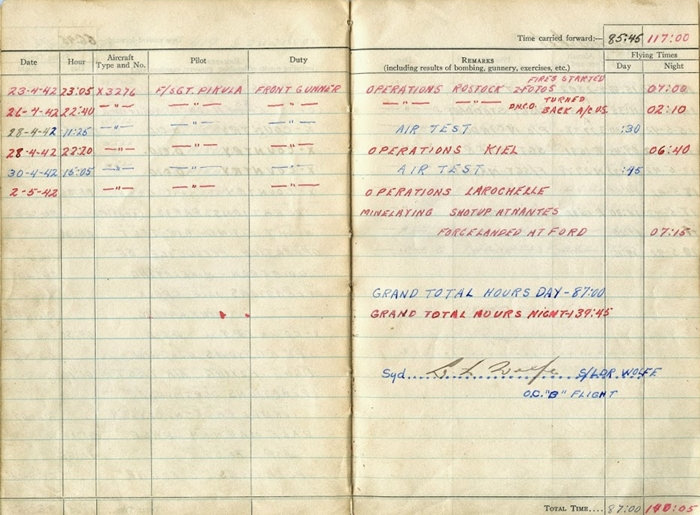 Time carried forward:— 85:45 117:00
Date Hour Aircraft Type and No. Pilot Duty Remarks (including results of bombing, gunnery, exercises, etc.) Flying Times Day Night
23-4-42 23:05 X3276 F/SGT. PIKULA FRONT GUNNER OPERATIONS ROSTOCK 2 FOTOS FIRES STARTED 07:00
26-4-42 22:40 —"— —"— —"— —"— —"— D.N.C.O. TURNED BACK A/C U/S. 02:10
28-4-42 11:25 —"— —"— —"— AIR TEST :30
28-4-42 22:20 —"— —"— —"— OPERATIONS KIEL 06:40
30-4-42 15:05 —"— —"— —"— AIR TEST :45
2-5-42 —"— —"— —"— OPERATIONS LAROCHELLE
MINELAYING SHOTUP AT NANTES
FORCELANDED AT FORD 07:15
GRAND TOTAL HOURS DAY - 87:00
GRAND TOTAL HOURS NIGHT - 139:45
Sgd. Wolfe S/LDR. WOLFE
O.C. "B" FLIGHT
Total Time.... 87:00